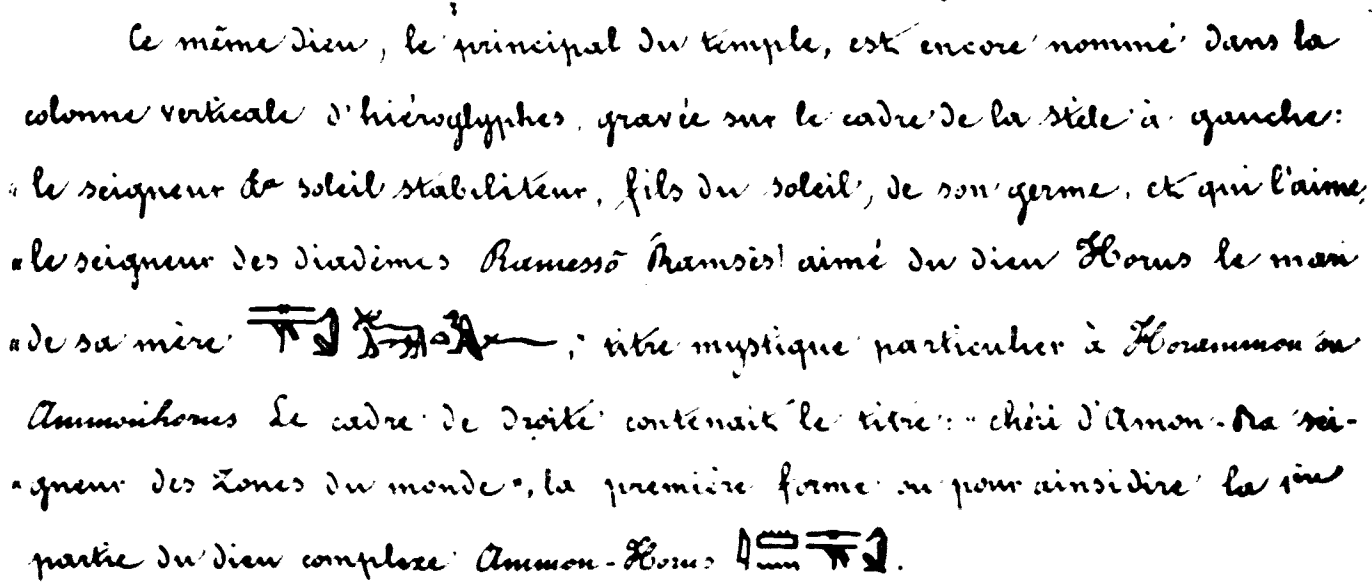 Ce même Dieu, le principal du temple, est encore nommé dans la
colonne verticale d'hiéroglyphes, gravée sur le cadre de la stèle à gauche:
"le seigneur soleil stabiliteur, fils du soleil, de son germe, et qui l'aime,
"le seigneur des diadèmes Ramessô Ramsès aimé du dieu Horus le mari
"de sa mère , " titre mystique particulier à Horammon ou
Ammonhorus Le cadre de droite contenait le titre: "chéri d'Amon-Ra sei-
"gneur des Zones du monde", la première forme ou pour ainsi dire la
partie du dieu complexe Ammon-Horus .